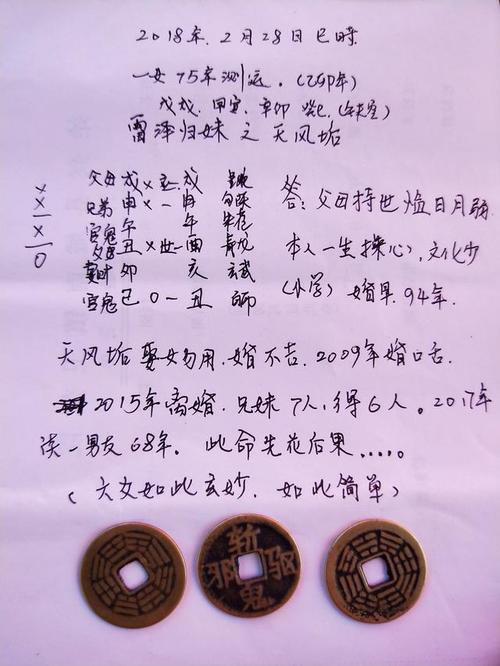 2018年.2月28日巳时.
一女75年测运.(乙卯年)
戊戌.甲寅.辛卯 癸巳.(午未空)
雷泽归妹之天风姤
父母戌x应.戌
兄弟申x一申
官鬼午 午
父母丑x世一酉 青龙
妻财卯 亥 玄武
官鬼巳0一丑
x
x
x
0
答:父母持世 日月
本人一生操心,文化少
(小学) 婚早.94年.
天风姤 娶女勿用.婚不吉.2009年婚口舌.
2015年离婚.兄妹7人,得6人。2017年
谈一男友68年. 此命先花后果.....
(六爻如此玄妙.如此简单)
斩
邪 驱
鬼